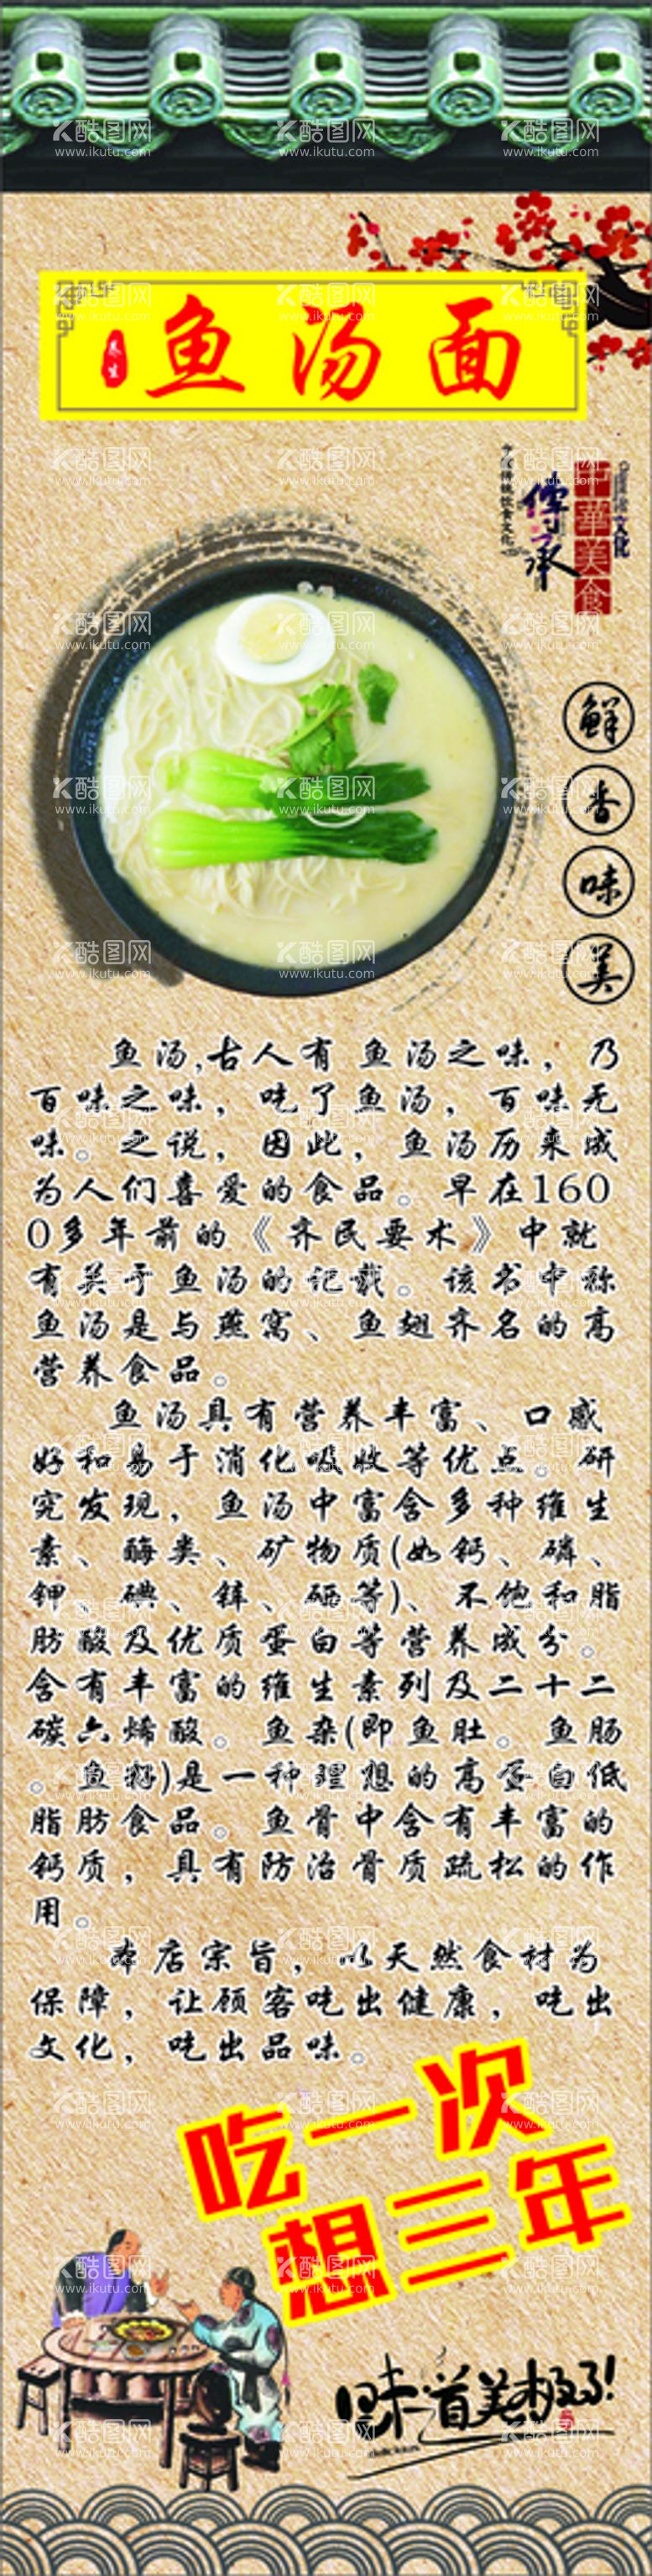 养生
鱼汤面
中国传统饮食文化
传承
中華美食
文化
鲜
香
味
美
鱼汤,古人有 鱼汤之味，乃
百味之味，吃了鱼汤，百味无
味。之说，因此，鱼汤历来成
为人们喜爱的食品。早在160
0多年前的《齐民要术》中就
有关于鱼汤的记载。该书中称
鱼汤是与燕窝、鱼翅齐名的高
营养食品。
鱼汤具有营养丰富、口感
好和易于消化吸收等优点。研
究发现，鱼汤中富含多种维生
素、酶类、矿物质(如钙、磷、
钾、碘、锌、硒等)、不饱和脂
肪酸及优质蛋白等营养成分。
含有丰富的维生素列及二十二
碳六烯酸。鱼杂(即鱼肚。鱼肠
。鱼籽)是一种理想的高蛋白低
脂肪食品。鱼骨中含有丰富的
钙质，具有防治骨质疏松的作
用。
本店宗旨，以天然食材为
保障，让顾客吃出健康，吃出
文化，吃出品味。
吃一次
想三年
味道美极了!
酷图网
www.ikutu.com